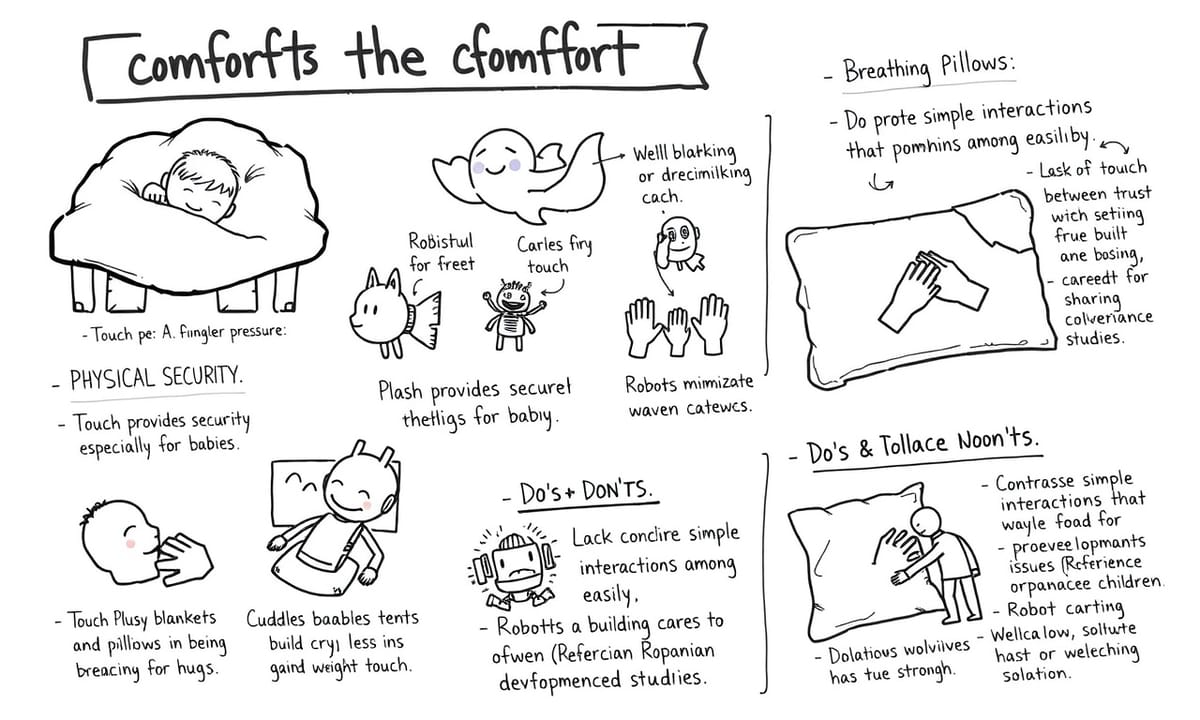 comforfts the cfomffort
- Touch pe: A. fiıngler pressure:
- PHYSICAL SECURITY.
- Touch provides security
especially for babies.
Welll blatking
or drecimilking
cach.
Robistııl
for freet
Carles fıry
touch
Plash provides securet
thetligs for babiy.
Robots mimizate
waven catewcs.
- Touch Plusy blankets
and pilllows in being
breacing for hugs.
Cuddles baables tents
build cryı less ins
gaind weight touch.
- Do's + DON'TS.
Lack conclire simple
interactions among
easily,
- Robotts a building cares to
ofwen (Refercian Ropanian
devfopmenced studlies.
- Breathing Pillows:
- Do prote simple interactions
that pomhins among easiliby.
- Lask of touch
between trust
wich setiing
frue built
ane bosing,
- careedt for
sharing
colveriance
studies.
- Do's & Tollace Noon'ts.
- Contrasse simple
interactions that
wayle foad for
- proevee lopmants
issues (Referience
orpanacee children.
- Robot carting
- Wellca low, sollute
hast or weleching
solation.
- Dolatious wolviives
has tue strongh.